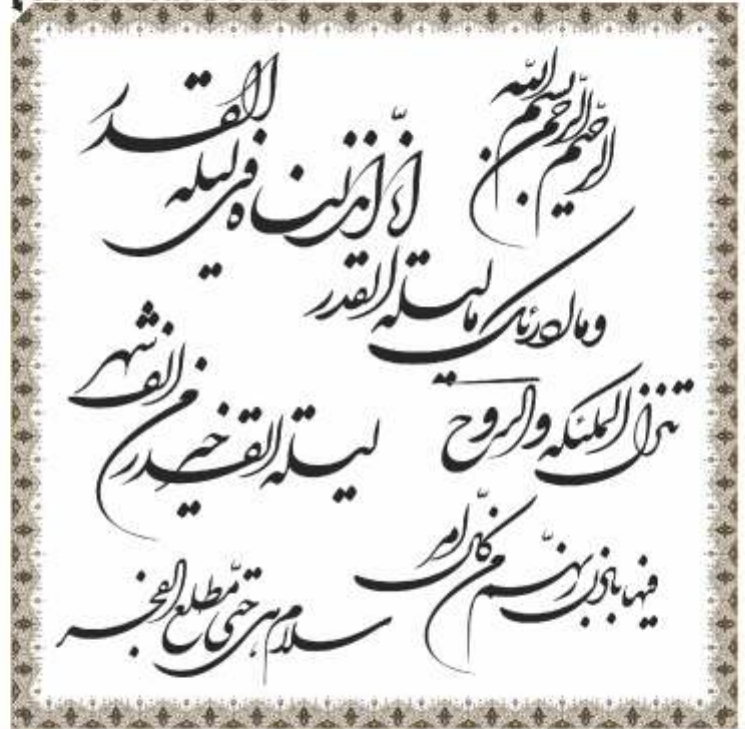 بسم الله الرحمن الرحیم
انّا انزلناه فی لیله القدر
وما ادرئک ما لیله القدر
لیله القدر خیر من الف شهر
تنزل الملئکه والروح
فیها باذن ربهّم من کلّ امر
سلام هی حتّی مطلع الفجر